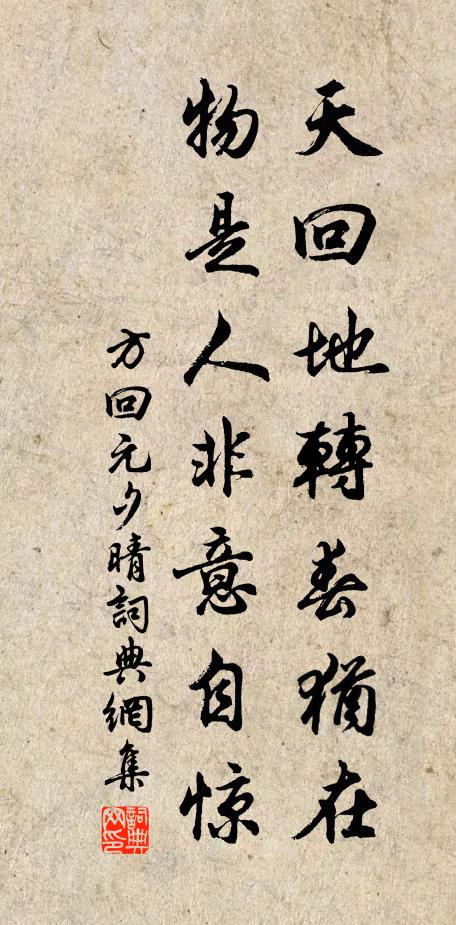 天回地轉春猶在
物是人非意自惊
方回元夕晴詞典網集
詞典网印